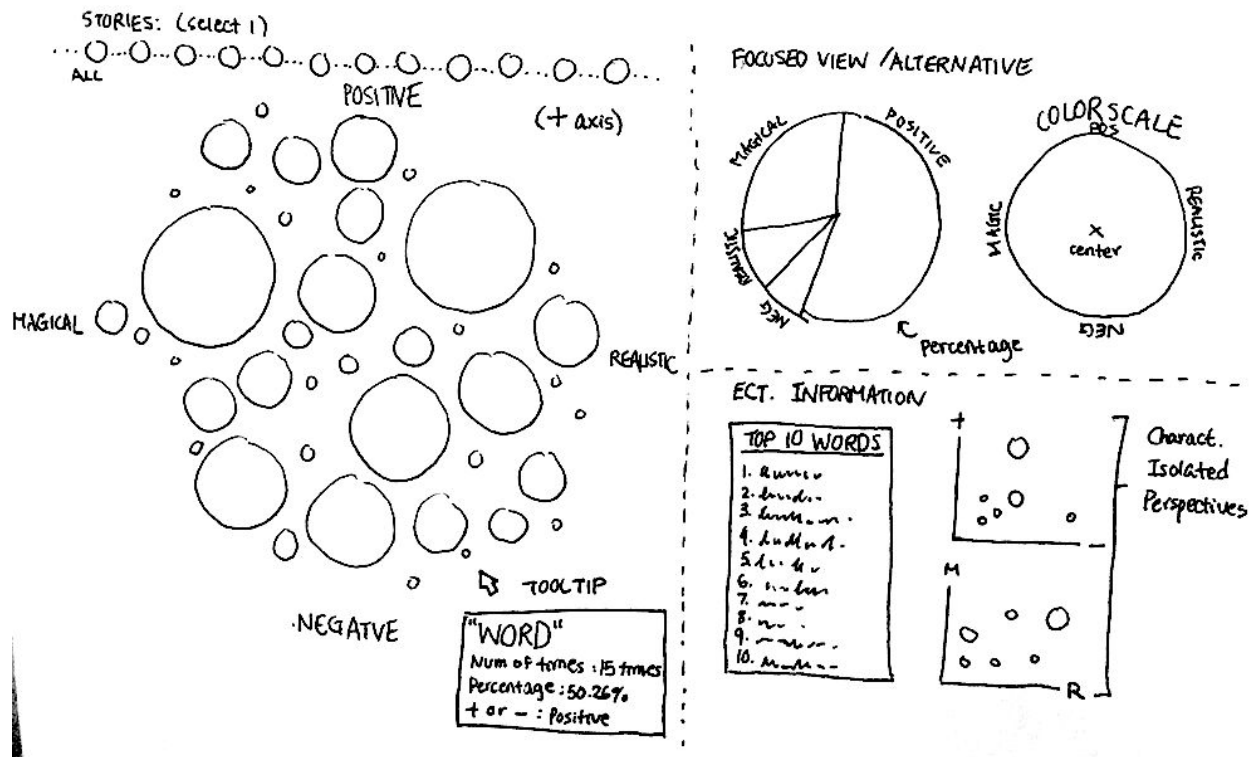 STORIES: (select 1)
ALL
POSITIVE
(+ axis)
MAGICAL
REALISTIC
.NEGATVE
TOOLTIP
"WORD"
Num of times : 15 times
Percentage : 50.26%
+ or - : Positive
FOCUSED VIEW / ALTERNATIVE
MAGICAL
POSITIVE
REALISTIC
NEG
percentage
COLORSCALE
POS
MAGIC
REALISTIC
x
center
NEG
ECT. INFORMATION
TOP 10 WORDS
1.
2.
3.
4.
5.
6.
7.
8.
9.
10.
+
-
M
R
Charact.
Isolated
Perspectives